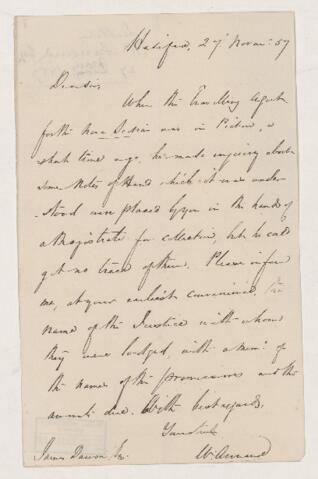 Halifax, 27 Novr. 57
Dear Sir,
When the Travelling Agent
for the Nova Scotian was in Pictou, a
short time ago, he made inquiry about
some Notes of Hand which it was under
-stood were placed by you in the hands of
a Magistrate for collection, but he could
get no trace of them. Please inform
me, at your earliest convenience, the
name of the Justice with whom
they were lodged, with a mem: of
the names of the promissors and the
amounts due. With best regards,
Yours truly
Wm Annand
James Dawson Esq.